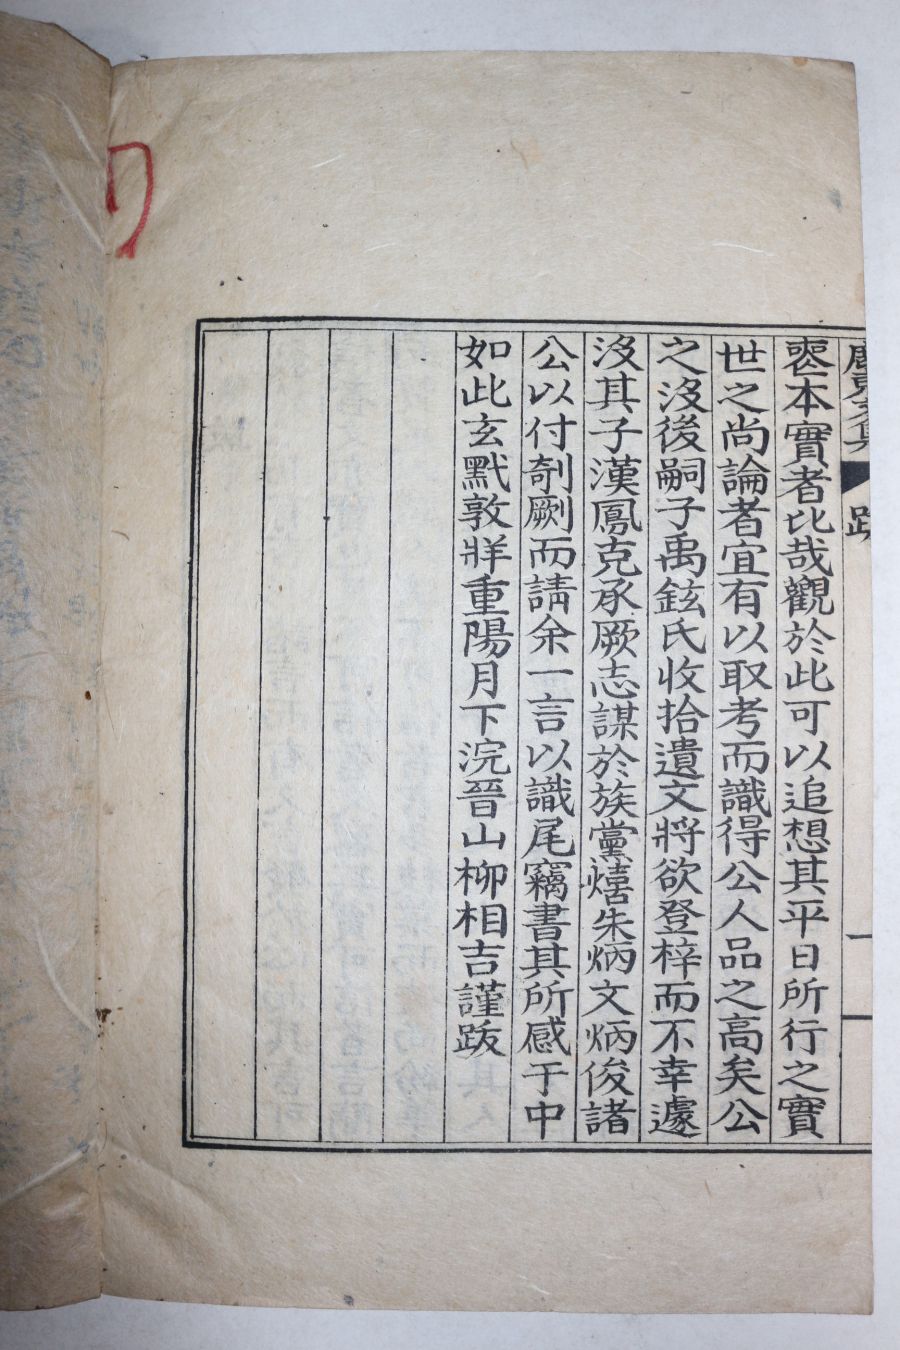 文集 跋 一
褏本實者比哉觀於此可以追想其平日所行之實
世之尚論者宜有以取考而識得公人品之高矣公
之沒後嗣子禹鉉氏收拾遺文將欲登梓而不幸遽
沒其子漢鳳克承厥志謀於族黨熺朱炳文炳俊諸
公以付剞劂而請余一言以識尾竊書其所感于中
如此玄黓敦牂重陽月下浣晉山柳相吉謹跋